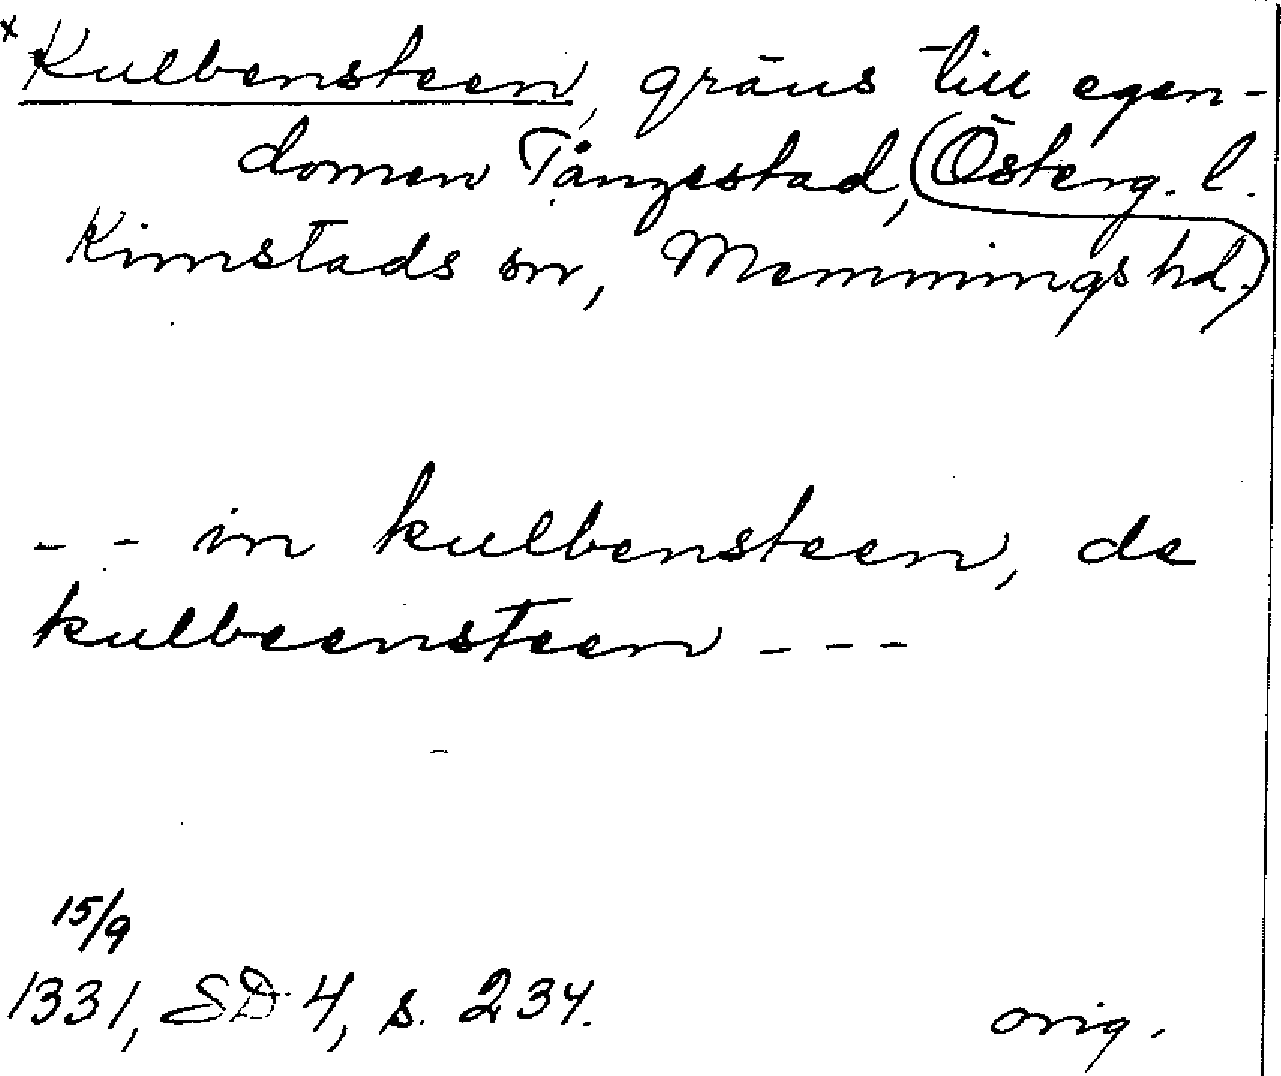 x Kulbensteen, gräns till egen-
domen Tångestad, (Österg. l.
Kimstads sn, Memmings hd.)
- - in kulbensteen, de
kulbeensteen - - -
15/9
1331, SD 4, s. 234.
orig.